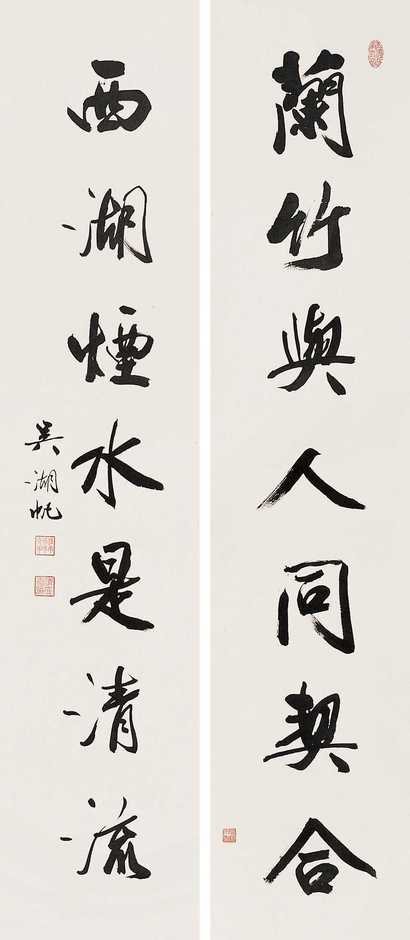 蘭竹與人同契合
西湖煙水是清流
吳湖帆